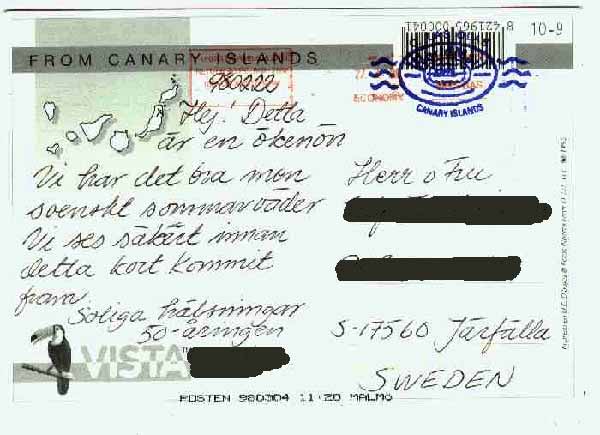 8 421965 000041
10-9
FROM CANARY ISLANDS
980222
ECONOMY
CANARY ISLANDS
Hej! Detta
är en ökenön
Vi har det bra men
svenskt sommarväder
Vi ses säkert innan
detta kort kommit
fram
Soliga hälsningar
50-åringen
Herr o Fru
S-17560 Järfälla
SWEDEN
VISTA
VISTA
POSTEN 980304 11·20 MALMÖ